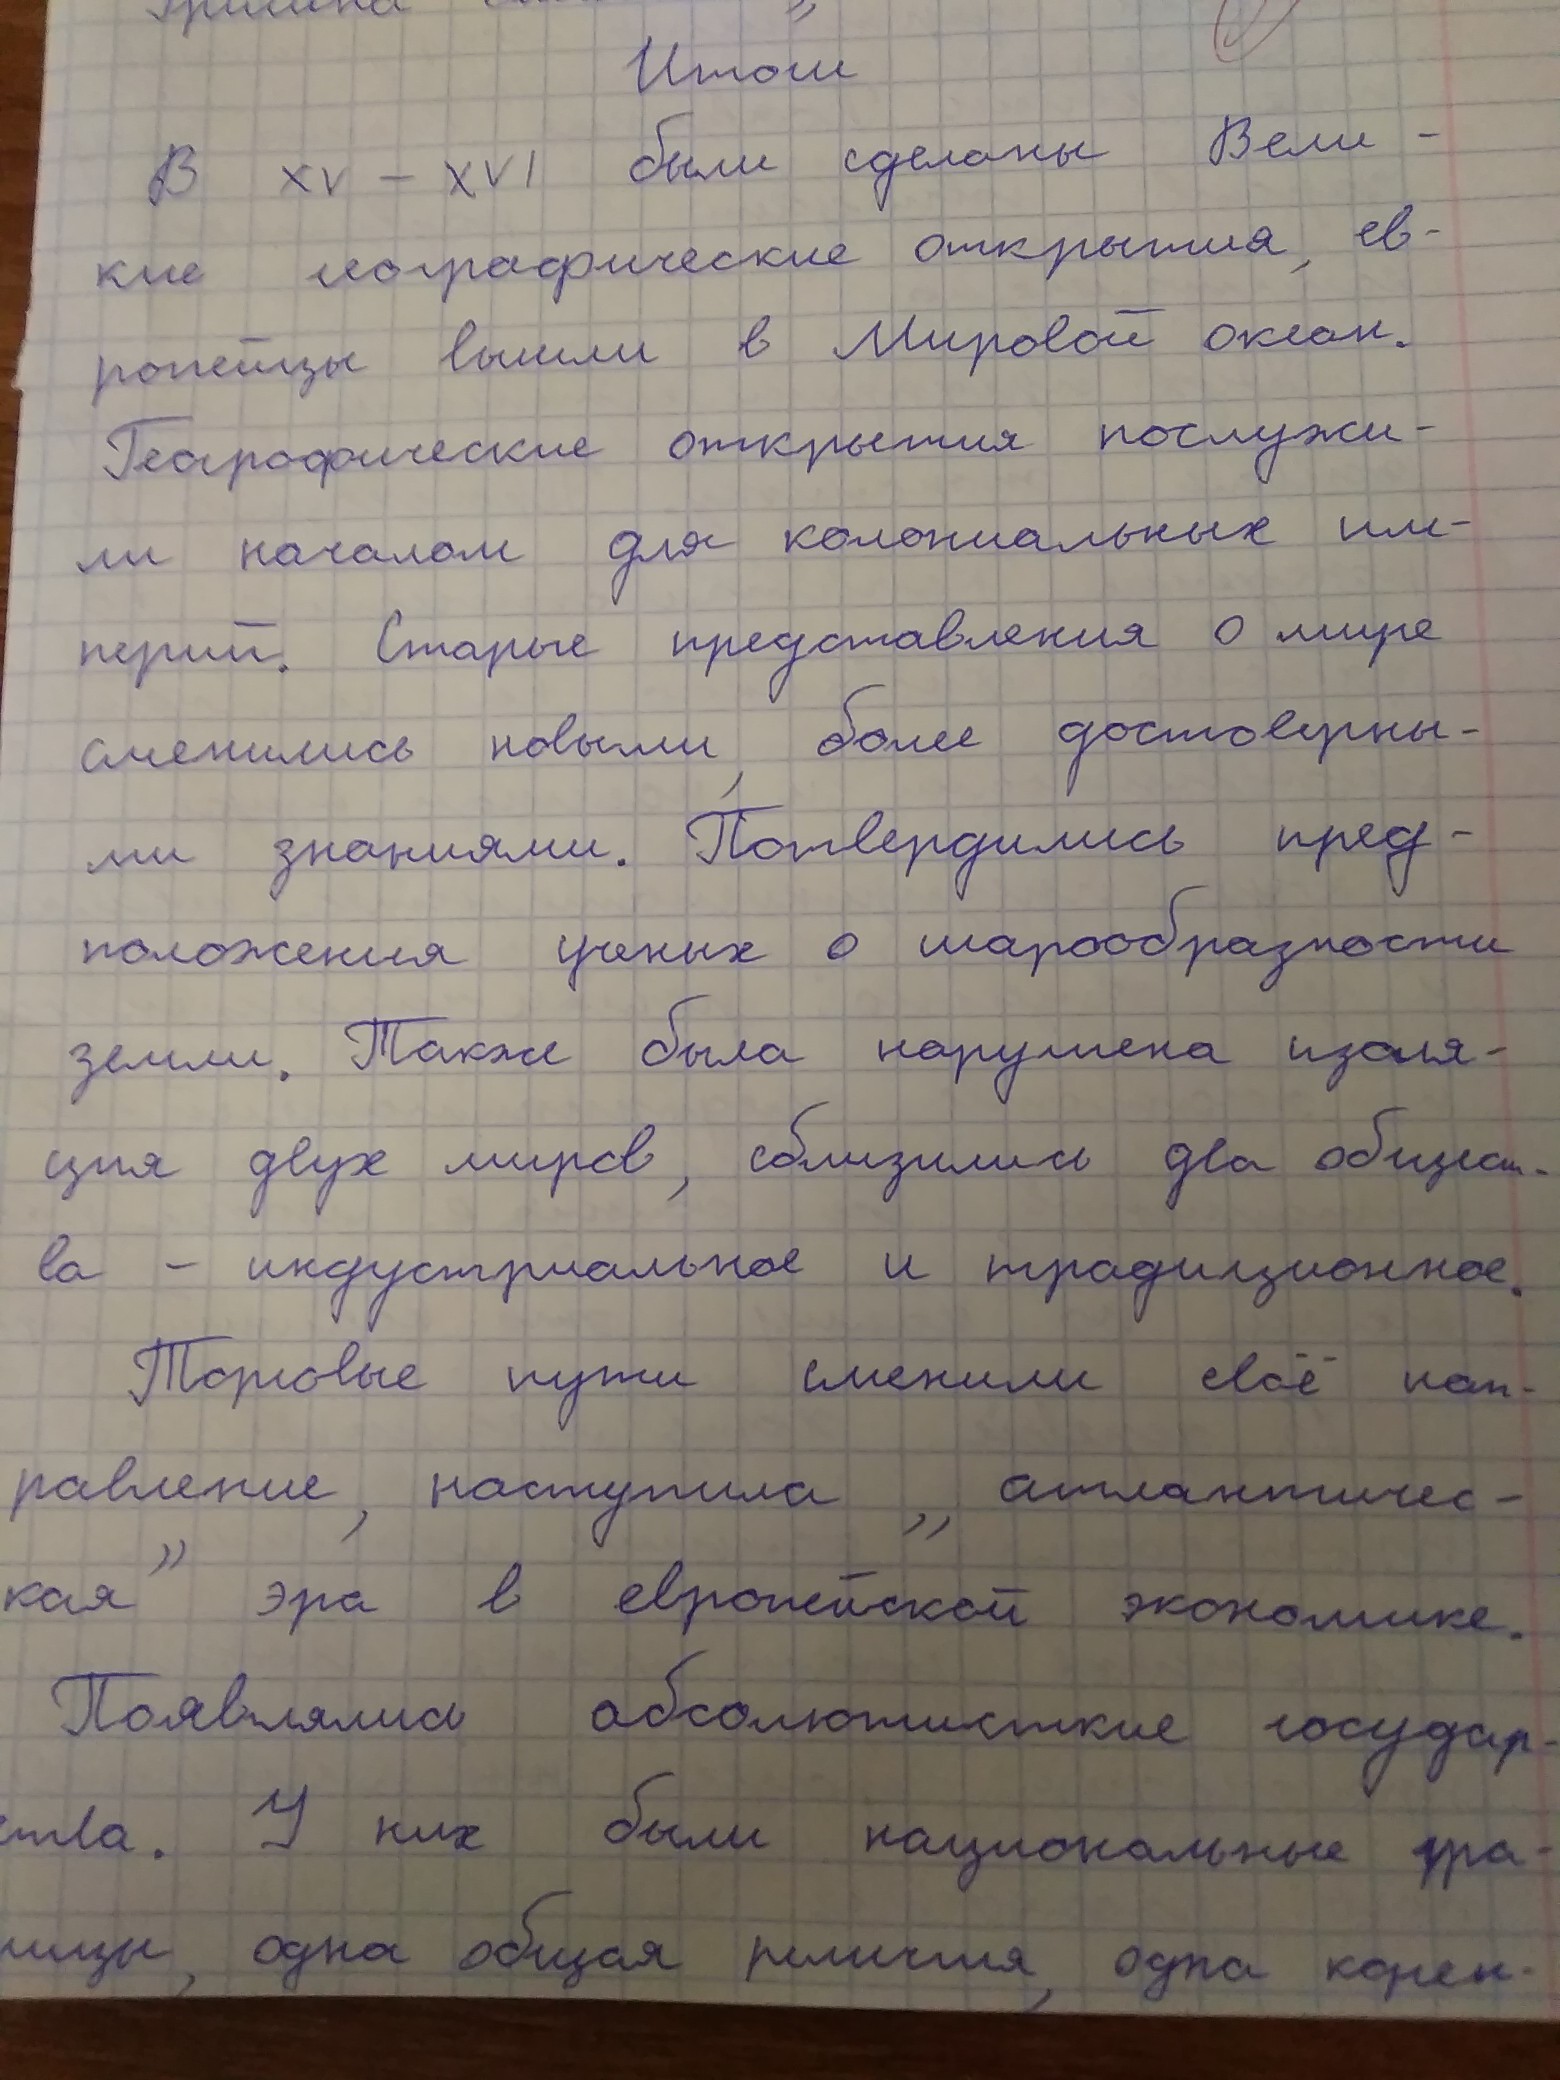 Итоги
В XV – XVI были сделаны Вели-
кие географические открытия, ев-
ропейцы вышли в Мировой океан.
Географические открытия послужи-
ли началом для колониальных им-
перий. Старые представления о мире
сменились новыми, более достоверны-
ми знаниями. Потвердились пред-
положения ученых о шарообразности
земли. Также была нарушена изоля-
ция двух миров, сблизились два общест-
ва – индустриальное и традиционное.
Торговые пути сменили своё нап-
равление, наступила „атлантичес-
кая” эра в европейской экономике.
Появлялись абсолютисткие государ-
ства. У них были национальные гра-
ницы, одна общая религия, одна корен-